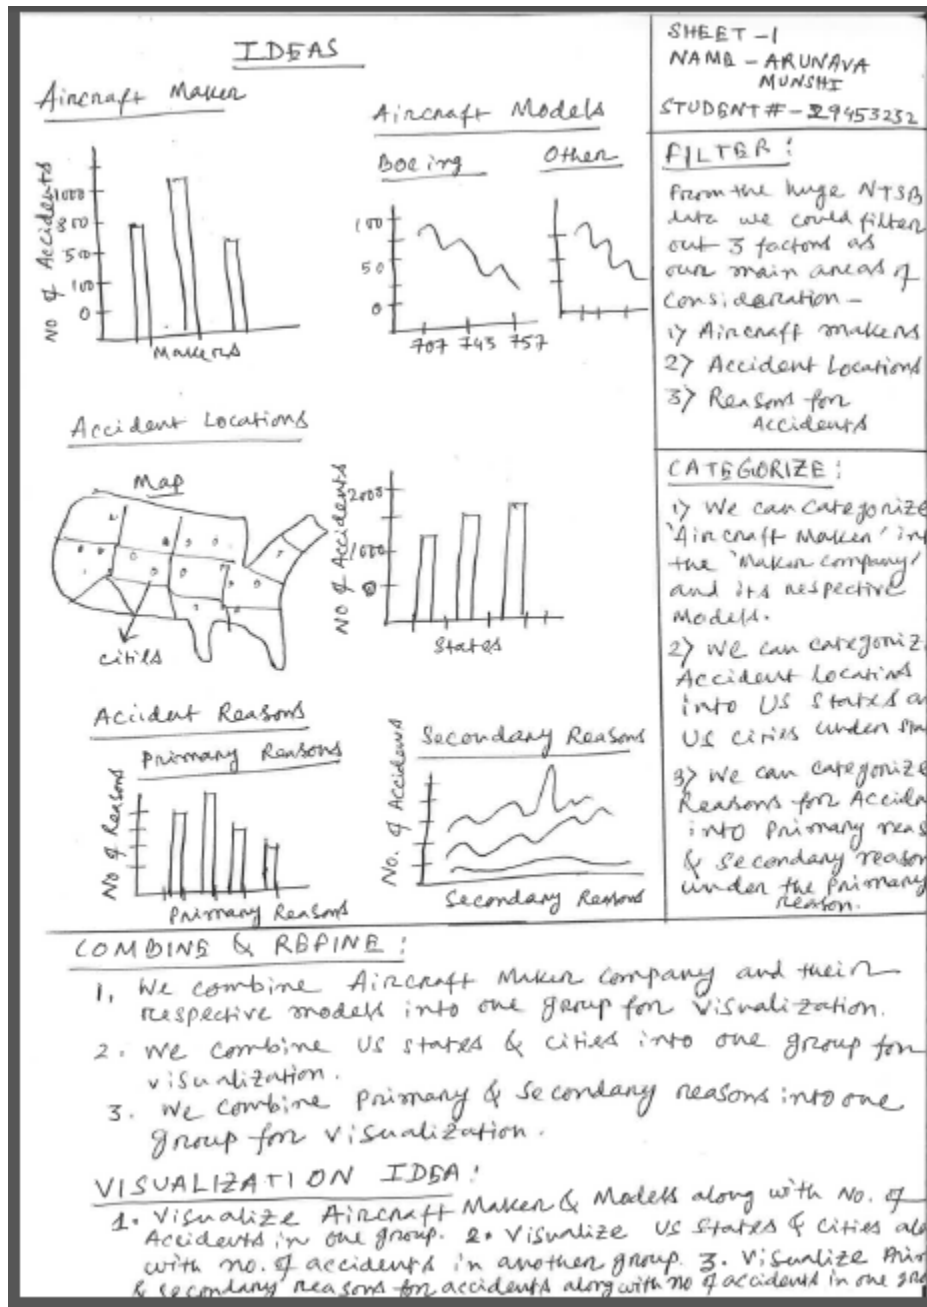 IDEAS
Aircraft Maker
No of Accidents
1000
800
500
100
0
Makers
Aircraft Models
Boeing
Other
100
50
0
707 743 757
Accident Locations
Map
cities
No of Accidents
2000
1000
0
States
Accident Reasons
Primary Reasons
No of Reasons
Primary Reasons
Secondary Reasons
No. of Accidents
Secondary Reasons
SHEET - 1
NAME - ARUNAVA
MUNSHI
STUDENT # - 29453232
FILTER :
From the huge NTSB
data we could filter
out 3 factors as
our main areas of
Consideration -
1) Aircraft makers
2) Accident Locations
3) Reasons for
Accidents
CATEGORIZE :
1) We can categorize
'Aircraft Maker' in
the 'Maker company'
and its respective
Models.
2) We can categoriz
Accident locations
into US States a
US cities under sta
3) We can categorize
Reasons for Accide
into Primary reas
& Secondary reason
under the Primary
reason.
COMBINE & REFINE :
1. We combine Aircraft Maker company and their
respective models into one group for visualization.
2. We combine US states & cities into one group for
visualization.
3. We combine Primary & Secondary reasons into one
group for visualization.
VISUALIZATION IDEA :
1. Visualize Aircraft Maker & Models along with No. of
Accidents in one group. 2. Visualize US States & Cities alo
with no. of accidents in another group. 3. Visualize Prim
& secondary reasons for accidents along with no of accidents in one gro